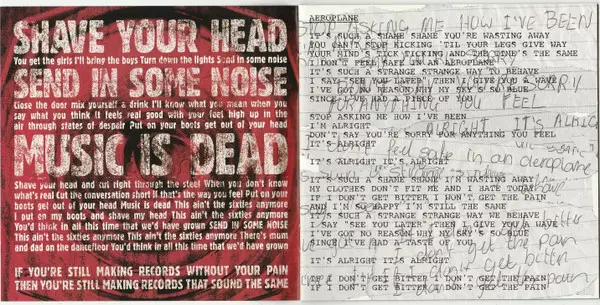 SHAVE YOUR HEAD
You get the girls I'll bring the boys Turn down the lights Send in some noise
SEND IN SOME NOISE
Close the door mix yourself a drink I'll know what you mean when you
say what you think It feels real good with your feet high up in the
air through states of despair Put on your boots get out of your head
MUSIC IS DEAD
Shave your head and cut right through the steel When you don't know
what's real Cut the conversation short If that's the way you feel Put on your
boots get out of your head Music is dead This ain't the sixties anymore
I put on my boots and shave my head This ain't the sixties anymore
You'd think in all this time that we'd have grown SEND IN SOME NOISE
This ain't the sixties anymore This ain't the sixties anymore There's mum
and dad on the dancefloor You'd think in all this time that we'd have grown
IF YOU'RE STILL MAKING RECORDS WITHOUT YOUR PAIN
THEN YOU'RE STILL MAKING RECORDS THAT SOUND THE SAME
AEROPLANE
IT'S SUCH A SHAME SHAME YOU'RE WASTING AWAY
YOU CAN'T STOP KICKING 'TIL YOUR LEGS GIVE WAY
YOUR MIND'S TICK TICKING AND THE TIME'S THE SAME
I DON'T FEEL SAFE IN AN AEROPLANE
IT'S SUCH A STRANGE STRANGE WAY TO BEHAVE
I SAY "SEE YOU LATER" THEN I GIVE YOU A WAVE
I'VE GOT NO REASON WHY MY SKY'S SO BLUE
SINCE I'VE HAD A PIECE OF YOU
STOP ASKING ME HOW I'VE BEEN
I'M ALRIGHT
DON'T SAY YOU'RE SORRY FOR ANYTHING YOU FEEL
IT'S ALRIGHT
IT'S ALRIGHT IT'S ALRIGHT
IT'S SUCH A SHAME SHAME I'M WASTING AWAY
MY CLOTHES DON'T FIT ME AND I HATE TODAY
IF I DON'T GET BITTER I WON'T GET THE PAIN
AND I'M SO HAPPY I'M STILL THE SAME
IT'S SUCH A STRANGE STRANGE WAY WE BEHAVE
I SAY "SEE YOU LATER" THEN I GIVE YOU A WAVE
I'VE GOT NO REASON WHY MY SKY'S SO BLUE
SINCE I'VE HAD A TASTE OF YOU
IT'S ALRIGHT IT'S ALRIGHT
IF I DON'T GET BITTER I DON'T GET THE PAIN
IF I DON'T GET BITTER I DON'T GET THE PAIN
ASKING ME HOW I'VE BEEN
SORRY
ANYTHING YOU FEEL
ALRIGHT IT'S ALRIG
feel safe in an aeroplane
bitter
don't get the pain
don't get bitter
don't get the pain